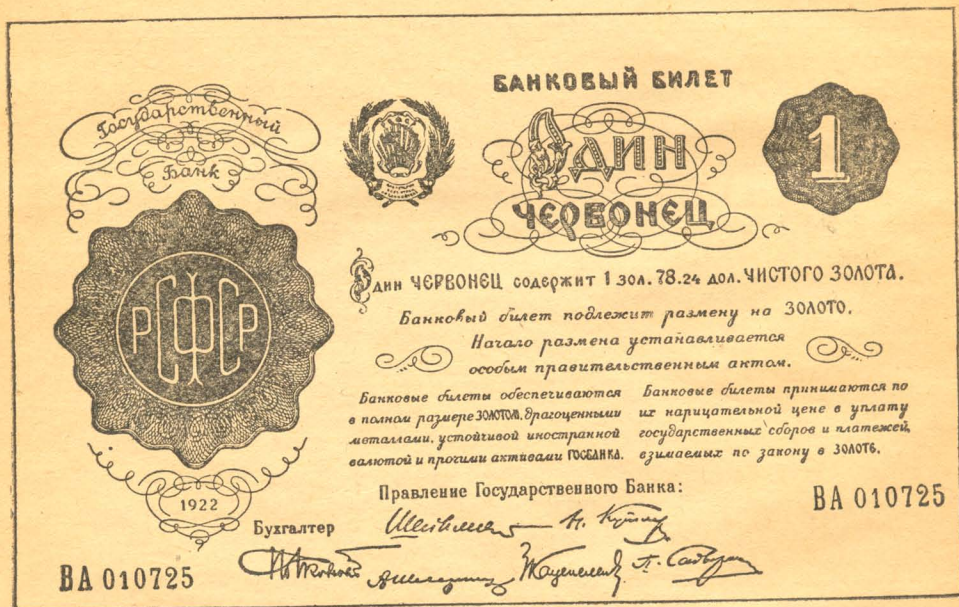 Государственный
Банк
РСФСР
1922
БАНКОВЫЙ БИЛЕТ
ОДИН
ЧЕРВОНЕЦ
1
Один ЧЕРВОНЕЦ содержит 1 зол. 78.24 дол. ЧИСТОГО ЗОЛОТА.
Банковый билет подлежит размену на ЗОЛОТО.
Начало размена устанавливается
особым правительственным актом.
Банковые билеты обеспечиваются
в полном размере ЗОЛОТОМ, драгоценными
металлами, устойчивой иностранной
валютой и прочими активами ГОСБАНКА.
Банковые билеты принимаются по
их нарицательной цене в уплату
государственных сборов и платежей,
взимаемых по закону в ЗОЛОТЕ.
Правление Государственного Банка:
Бухгалтер
ВА 010725
ВА 010725